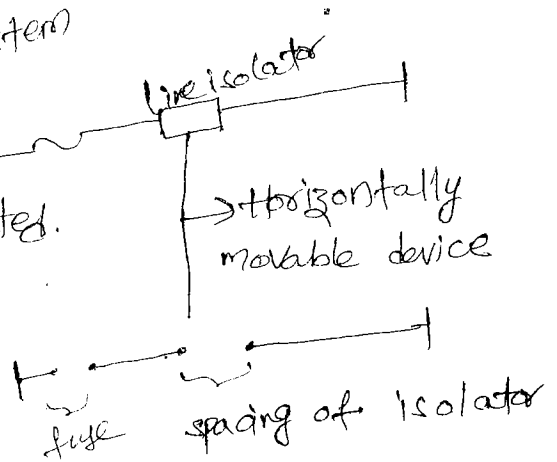 tem
Line isolator
ted.
Horizontally
movable device
fuse spacing of isolator